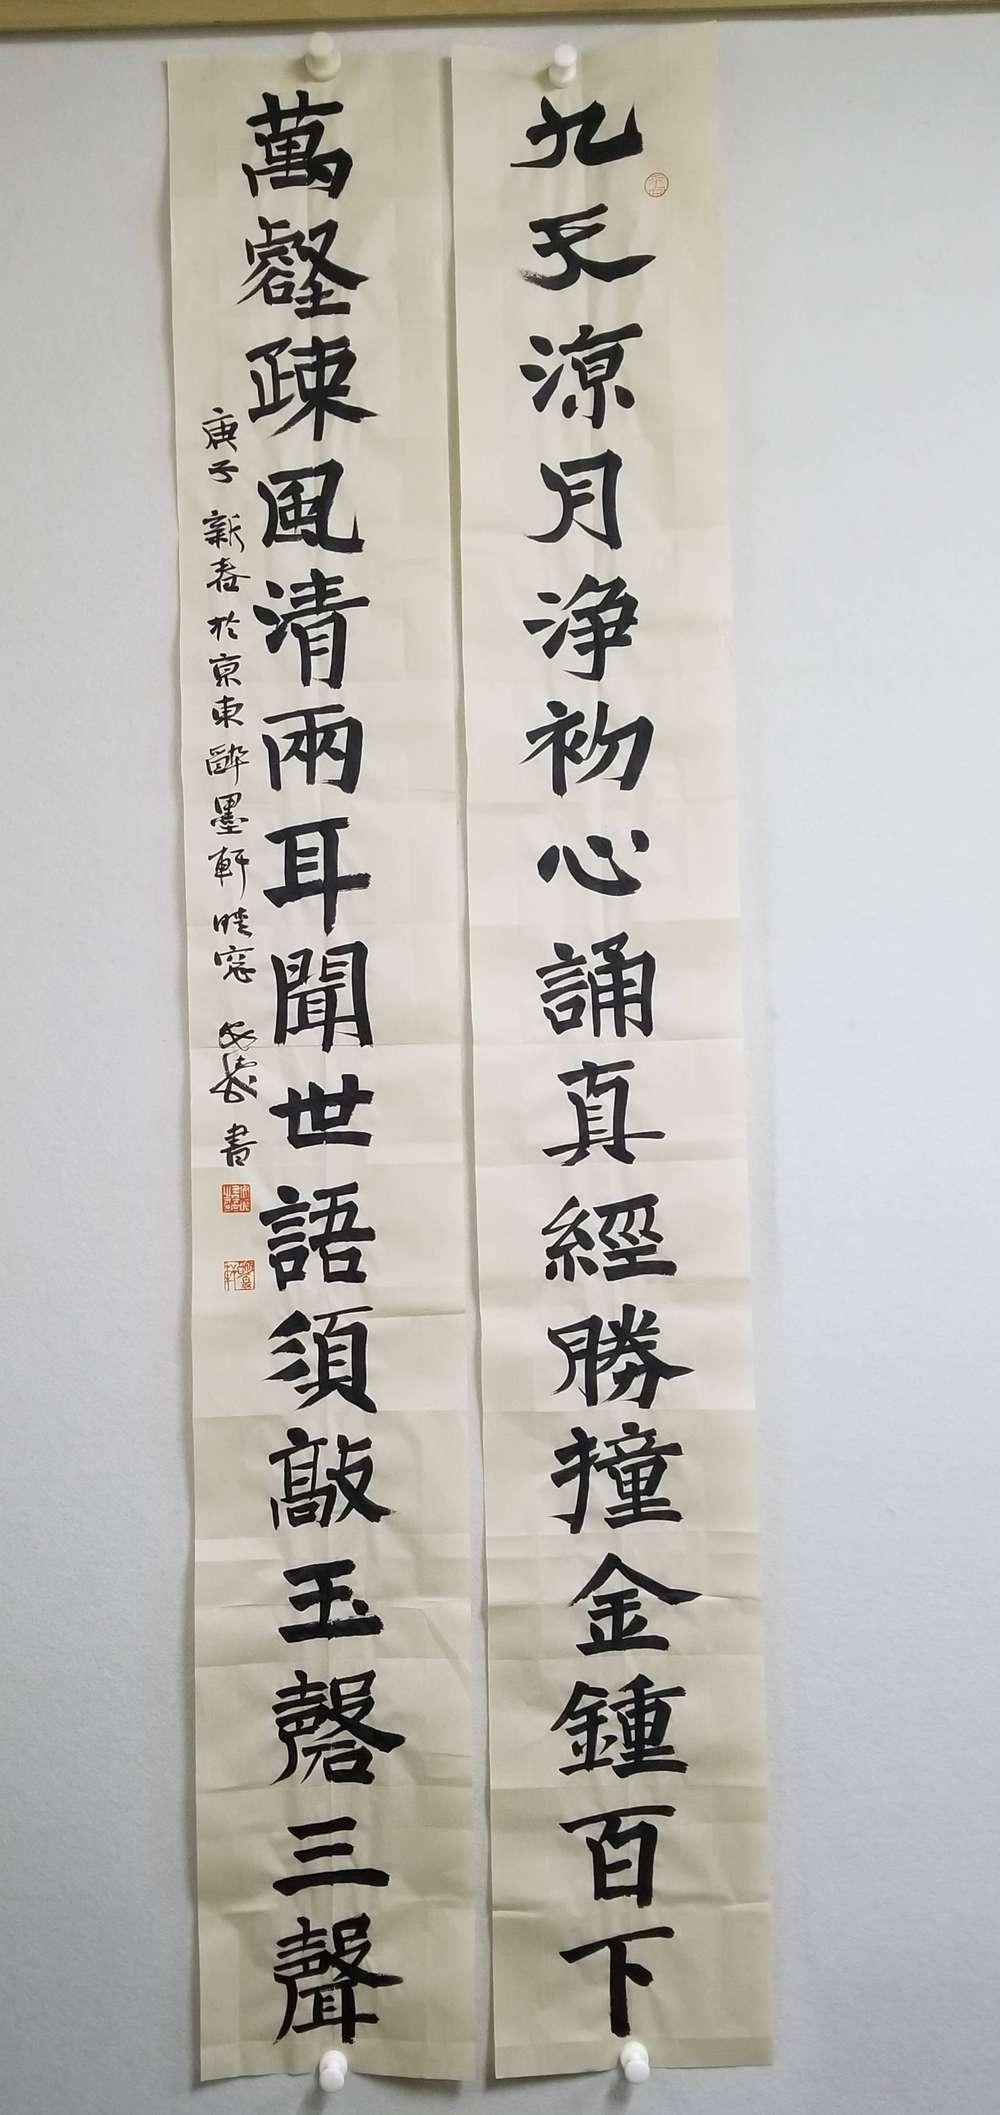 九天涼月浄初心誦真經勝撞金鍾百下
萬壑疎風清兩耳聞世語須敲玉磬三聲
庚子新春於京東醉墨軒晴窓 書